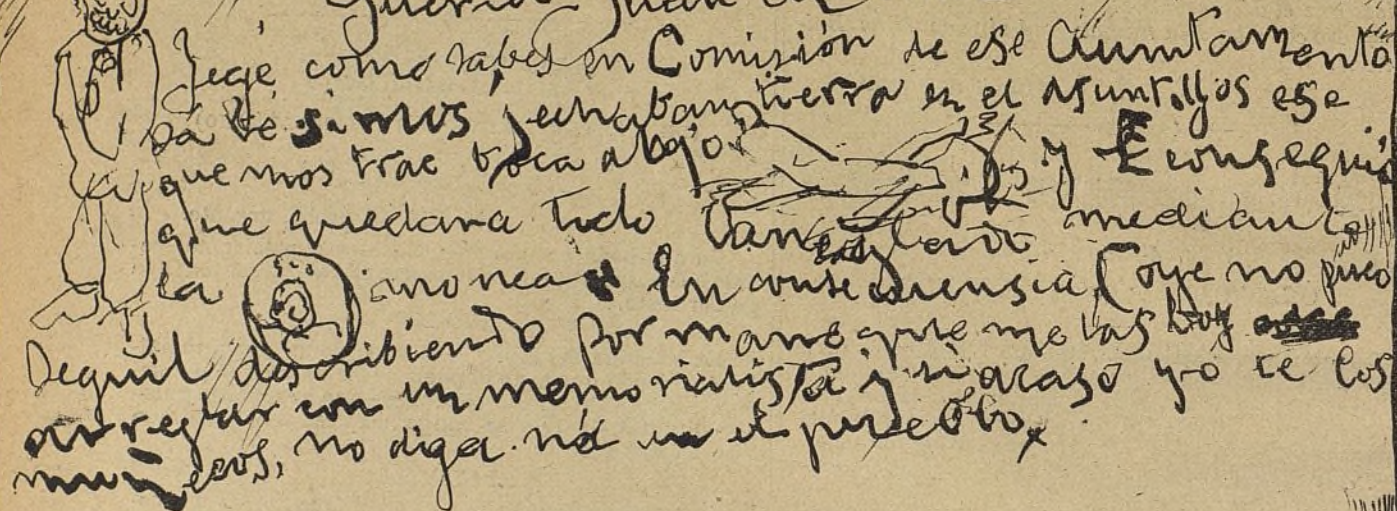 Querido Juan
Jegé como sabes en Comisión de ese Auntamiento
pa be si mus echaban tierra en el asuntillos ese
que mos trae boca abajo y E conseguio
que quedara todo mediante
la monea En consecuensia (oye no pueo
seguil describiendo por mano que me las boy
arreglar con un memorialista y si acaso yo te los
muñecos, no diga ná en el pueblo